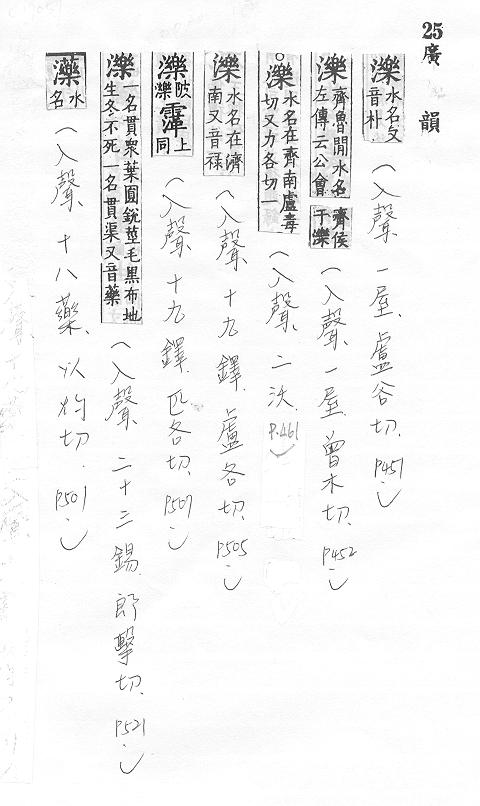 25廣韻
濼水名又音朴（入聲 一屋、盧谷切、P451）
濼齊魯閒水名左傳云公會齊侯于濼（入聲 一屋、曾木切、P452）
濼水名在齊南盧毒切又力各切一（入聲、二沃、P.461）
濼水名在濟南又音祿（入聲 十九鐸、盧各切、P505）
濼陂濼䨰上同（入聲 十九鐸、匹各切、P507）
濼一名貫衆葉圓銳莖毛黑布地生冬不死一名貫渠又音藥（入聲 二十三錫、郎擊切、P521）
藥水名（入聲 十八藥、以灼切、P501）